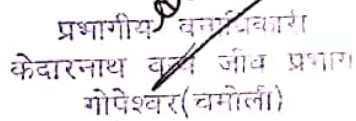 प्रभागीय वनाधिकारी
केदारनाथ वन्य जीव प्रभाग
गोपेश्वर(चमोली)